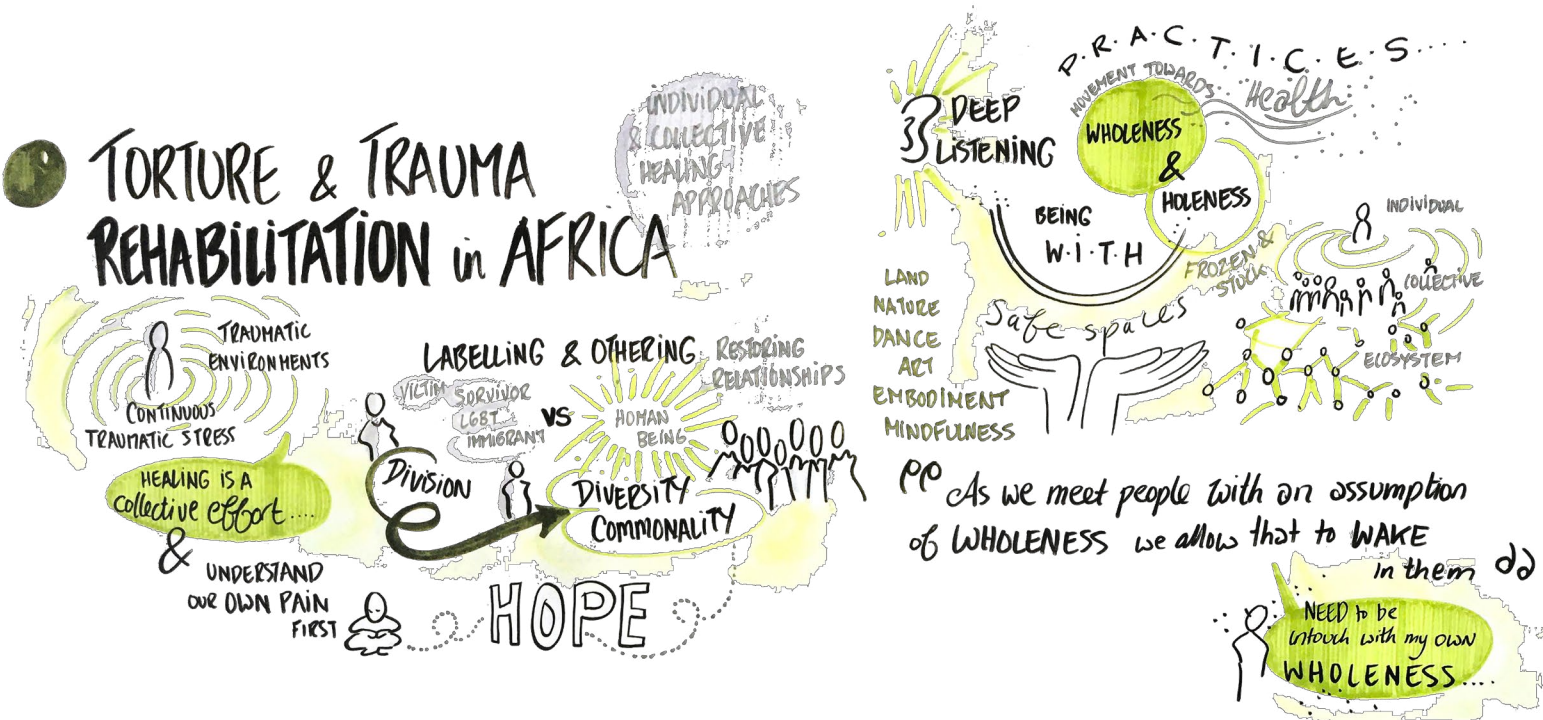 TORTURE & TRAUMA
REHABILITATION in AFRICA
INDIVIDUAL
& COLLECTIVE
HEALING
APPROACHES
TRAUMATIC
ENVIRONMENTS
CONTINUOUS
TRAUMATIC STRESS
HEALING IS A
collective effort....
&
UNDERSTAND
OUR OWN PAIN
FIRST
LABELLING & OTHERING
VICTIM
SURVIVOR
LGBT
IMMIGRANT
VS
HUMAN
BEING
RESTORING
RELATIONSHIPS
DIVISION
DIVERSITY
COMMONALITY
HOPE
P.R.A.C.T.I.C.E.S....
DEEP
LISTENING
MOVEMENT TOWARDS
Health
WHOLENESS
&
HOLENESS
BEING
W.I.T.H
FROZEN &
STUCK
Safe spaces
LAND
NATURE
DANCE
ART
EMBODIMENT
MINDFULNESS
INDIVIDUAL
COLLECTIVE
ECOSYSTEM
As we meet people with an assumption
of WHOLENESS we allow that to WAKE
in them
NEED to be
intouch with my own
WHOLENESS....